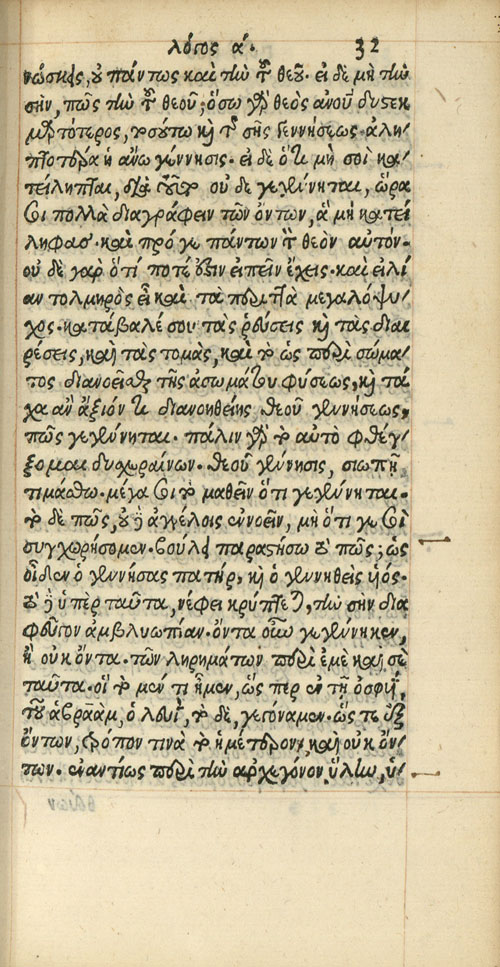 λόγος α΄. 32
νώσκεις, οὐ πάντως καὶ τὴν τοῦ θεοῦ. εἰ δὲ μὴ τὴν
σὴν, πῶς τὴν τοῦ θεοῦ; ὅσῳ γὰρ θεὸς ἀνου δυστεκ
μαρτότερος, τοσούτῳ καὶ τῆς σῆς γεννήσεως ἀλη/
πτοτέρα ἡ ἄνω γέννησις. εἰ δὲ ὅτι μὴ σοὶ κα/
τείληπται, διὰ τοῦτο οὐδὲ γεγέννηται, ὥρα
σοι πολλὰ διαγράφειν τῶν ὄντων, ἃ μὴ κατεί
ληφας. καὶ πρό γε πάντων τὸν θεὸν αὐτόν.
οὐδὲ γὰρ ὅτί ποτέ ἐστιν εἰπεῖν ἔχεις. καὶ εἰ λί
αν τολμηρὸς εἶ καὶ τὰ περιττὰ μεγαλόψυ/
χος. κατάβαλέ σου τὰς ῥεύσεις καὶ τὰς διαι
ρέσεις, καὶ τὰς τομὰς, καὶ τὸ ὡς περὶ σώμα/
τος διανοεῖσθαι τῆς ἀσωμάτου φύσεως, καὶ τά
χα ἂν ἄξιόν τι διανοηθείης θεοῦ γεννήσεως,
πῶς γεγέννηται. πάλιν γὰρ τὸ αὐτὸ φθέγ/
ξομαι δυσχεραίνων. θεοῦ γέννησις, σιωπῇ
τιμάσθω. μέγα σοι τὸ μαθεῖν ὅτι γεγέννηται.
τὸ δὲ πῶς, οὐδὲ ἀγγέλοις ἐννοεῖν, μὴ ὅτι γε σοὶ
συγχωρήσομεν. βούλει παραστήσω τὸ πῶς; ὡς
οἶδεν ὁ γεννήσας πατήρ, καὶ ὁ γεννηθεὶς υἱός.
τὸ δὲ ὑπὲρ ταῦτα, νέφει κρύπτεται, τὴν σὴν δια
φεῦγον ἀμβλυωπίαν. ὄντα οὖν γεγέννηκεν,
ἢ οὐκ ὄντα. τῶν ληρημάτων περὶ ἐμὲ καὶ σὲ
ταῦτα. οἳ τὸ μέν τι ἦμεν, ὥς περ ἐν τῇ ὀσφύϊ,
τοῦ ἀβραὰμ, ὁ λευῒ, τὸ δὲ, γεγόναμεν. ὥς τε ἐξ
ὄντων, τρόπον τινὰ τὸ ἡμέτερον, καὶ οὐκ ὄν/
των. ἐναντίως περὶ τὴν ἀρχέγονον ὕλην, ὑ/